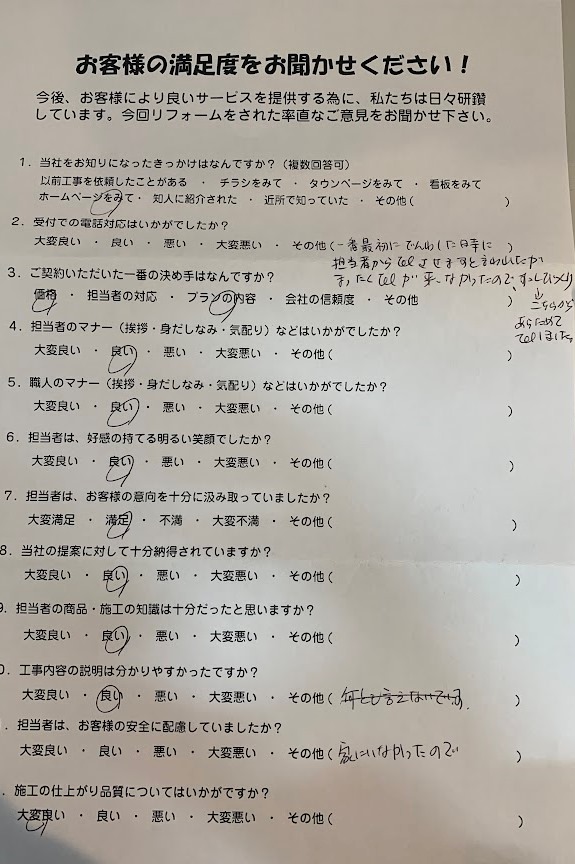 お客様の満足度をお聞かせください！
今後、お客様により良いサービスを提供する為に、私たちは日々研鑽
しています。今回リフォームをされた率直なご意見をお聞かせ下さい。
1．当社をお知りになったきっかけはなんですか？（複数回答可）
以前工事を依頼したことがある ・ チラシをみて ・ タウンページをみて ・ 看板をみて
ホームページをみて・ 知人に紹介された ・ 近所で知っていた ・ その他（ ）
2．受付での電話対応はいかがでしたか？
大変良い ・ 良い ・ 悪い ・ 大変悪い ・ その他（一番最初にでんわした日寺に ）
担当者からTelさせますと言われたが
まったくTelが来なかったので、すっしびっくり
3．ご契約いただいた一番の決め手はなんですか？
価格 ・ 担当者の対応 ・ プランの内容 ・ 会社の信頼度 ・ その他 ）
↓
こちらから
あらためて
Telしました
4．担当者のマナー（挨拶・身だしなみ・気配り）などはいかがでしたか？
大変良い ・ 良い ・ 悪い ・ 大変悪い ・ その他（ ）
5．職人のマナー（挨拶・身だしなみ・気配り）などはいかがでしたか？
大変良い ・ 良い ・ 悪い ・ 大変悪い ・ その他（ ）
6．担当者は、好感の持てる明るい笑顔でしたか？
大変良い ・ 良い ・ 悪い ・ 大変悪い ・ その他（ ）
7．担当者は、お客様の意向を十分に汲み取っていましたか？
大変満足 ・ 満足 ・ 不満 ・ 大変不満 ・ その他（ ）
8．当社の提案に対して十分納得されていますか？
大変良い ・ 良い ・ 悪い ・ 大変悪い ・ その他（ ）
9．担当者の商品・施工の知識は十分だったと思いますか？
大変良い ・ 良い ・ 悪い ・ 大変悪い ・ その他（ ）
0．工事内容の説明は分かりやすかったですか？
大変良い ・ 良い ・ 悪い ・ 大変悪い ・ その他（ 何とも言えないでいる． ）
．担当者は、お客様の安全に配慮していましたか？
大変良い ・ 良い ・ 悪い ・ 大変悪い ・ その他（ 家にいなかったので ）
．施工の仕上がり品質についてはいかがですか？
大変良い ・ 良い ・ 悪い ・ 大変悪い ・ その他（ ）